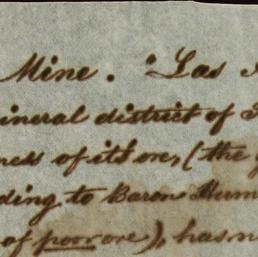 Mine. "Las
ineral district of
ness of its ore, (the
ding to Baron Hum
of poor ore), has n